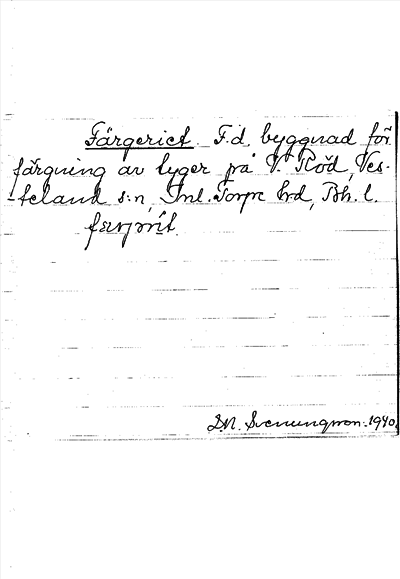 Färgeriet. F.d. byggnad för
färgning av tyger på V. Röd, Ves-
-terland s:n, Inl. Torpe hrd, Bh. l.
färjərìt
D.N. Svenungsson. 1940.